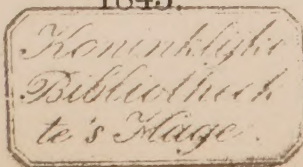 1843.
Koninklijke
Bibliotheek
te's Hage.